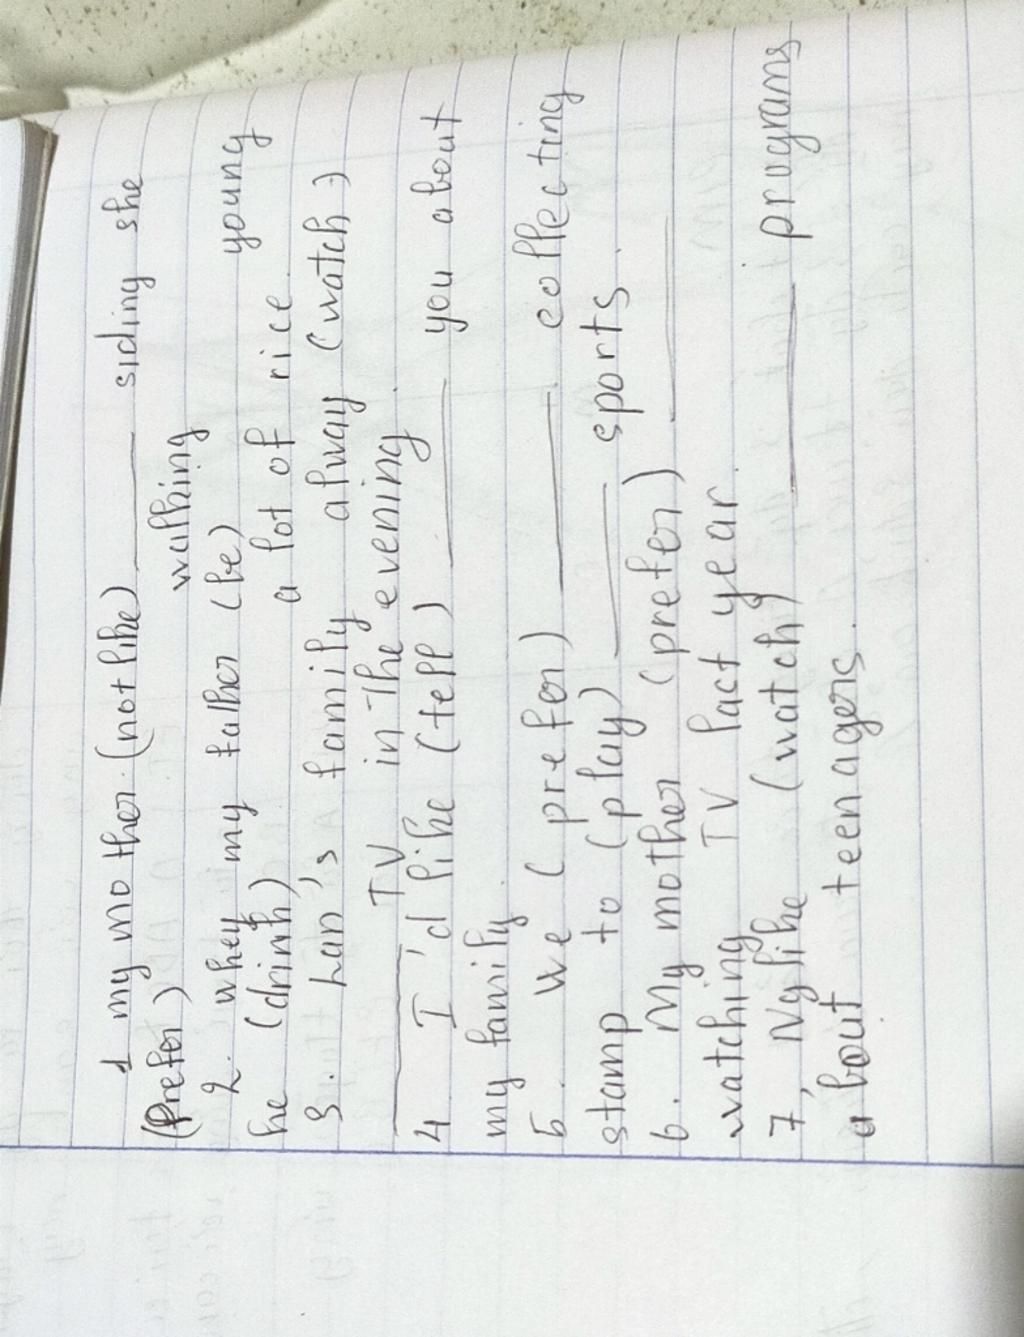 1 my mother (not like) ____ siding she
(prefer) walking
2. whey my father (be) young
he (drink) a lot of rice
3. Lan's family alway (watch)
____ TV in the evening
4 I'd like (tell) ____ you about
my family.
5. we (prefer) ____ collecting
stamp to (play) ____ sports.
6. My mother (prefer) ____
watching TV last year.
7, Ny like (watch) ____ programs
about teenagers.